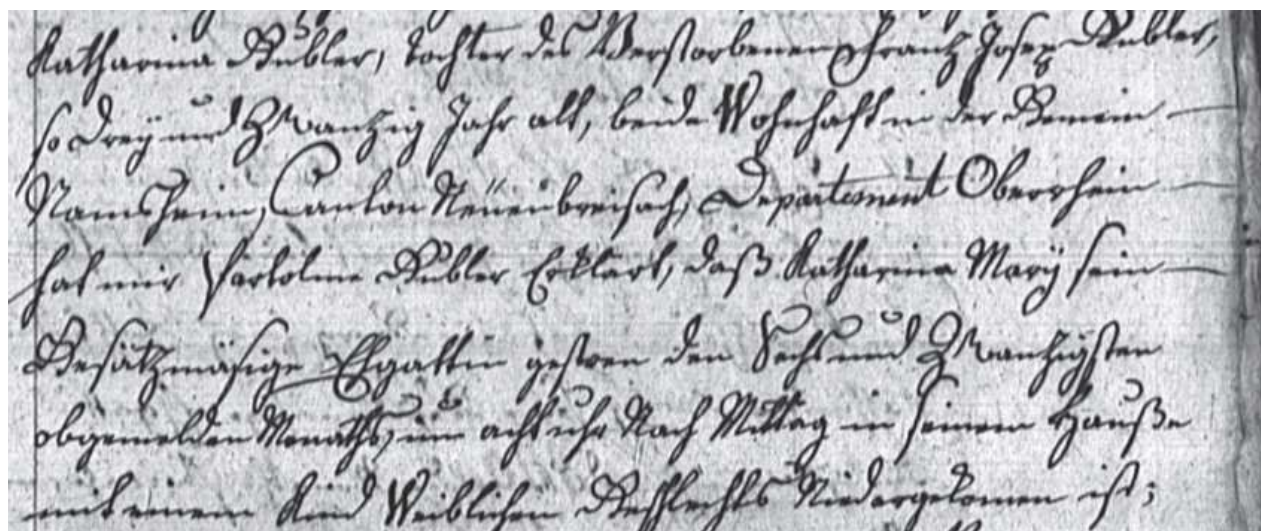 Katharina Kubler, tochter des Verstorbenen Frantz Joseph Kubler,
so Dreÿ und Zwantzig Jahr alt, beide Wohnhaft in der Gemein
Namsheim, Canton Neüenbreisach, Departement Oberrhein
hat mir Bartolme Kubler Erklärt, daß Katharina Marÿ sein
Gesätzmäsige Ehgattin gestren den Sechs und Zwantzigsten
obgemelden Monaths, um acht uhr Nach Mittag in seinem Hauße
mit einem Kind Weiblichen Geschlechts Niedergekomen ist;